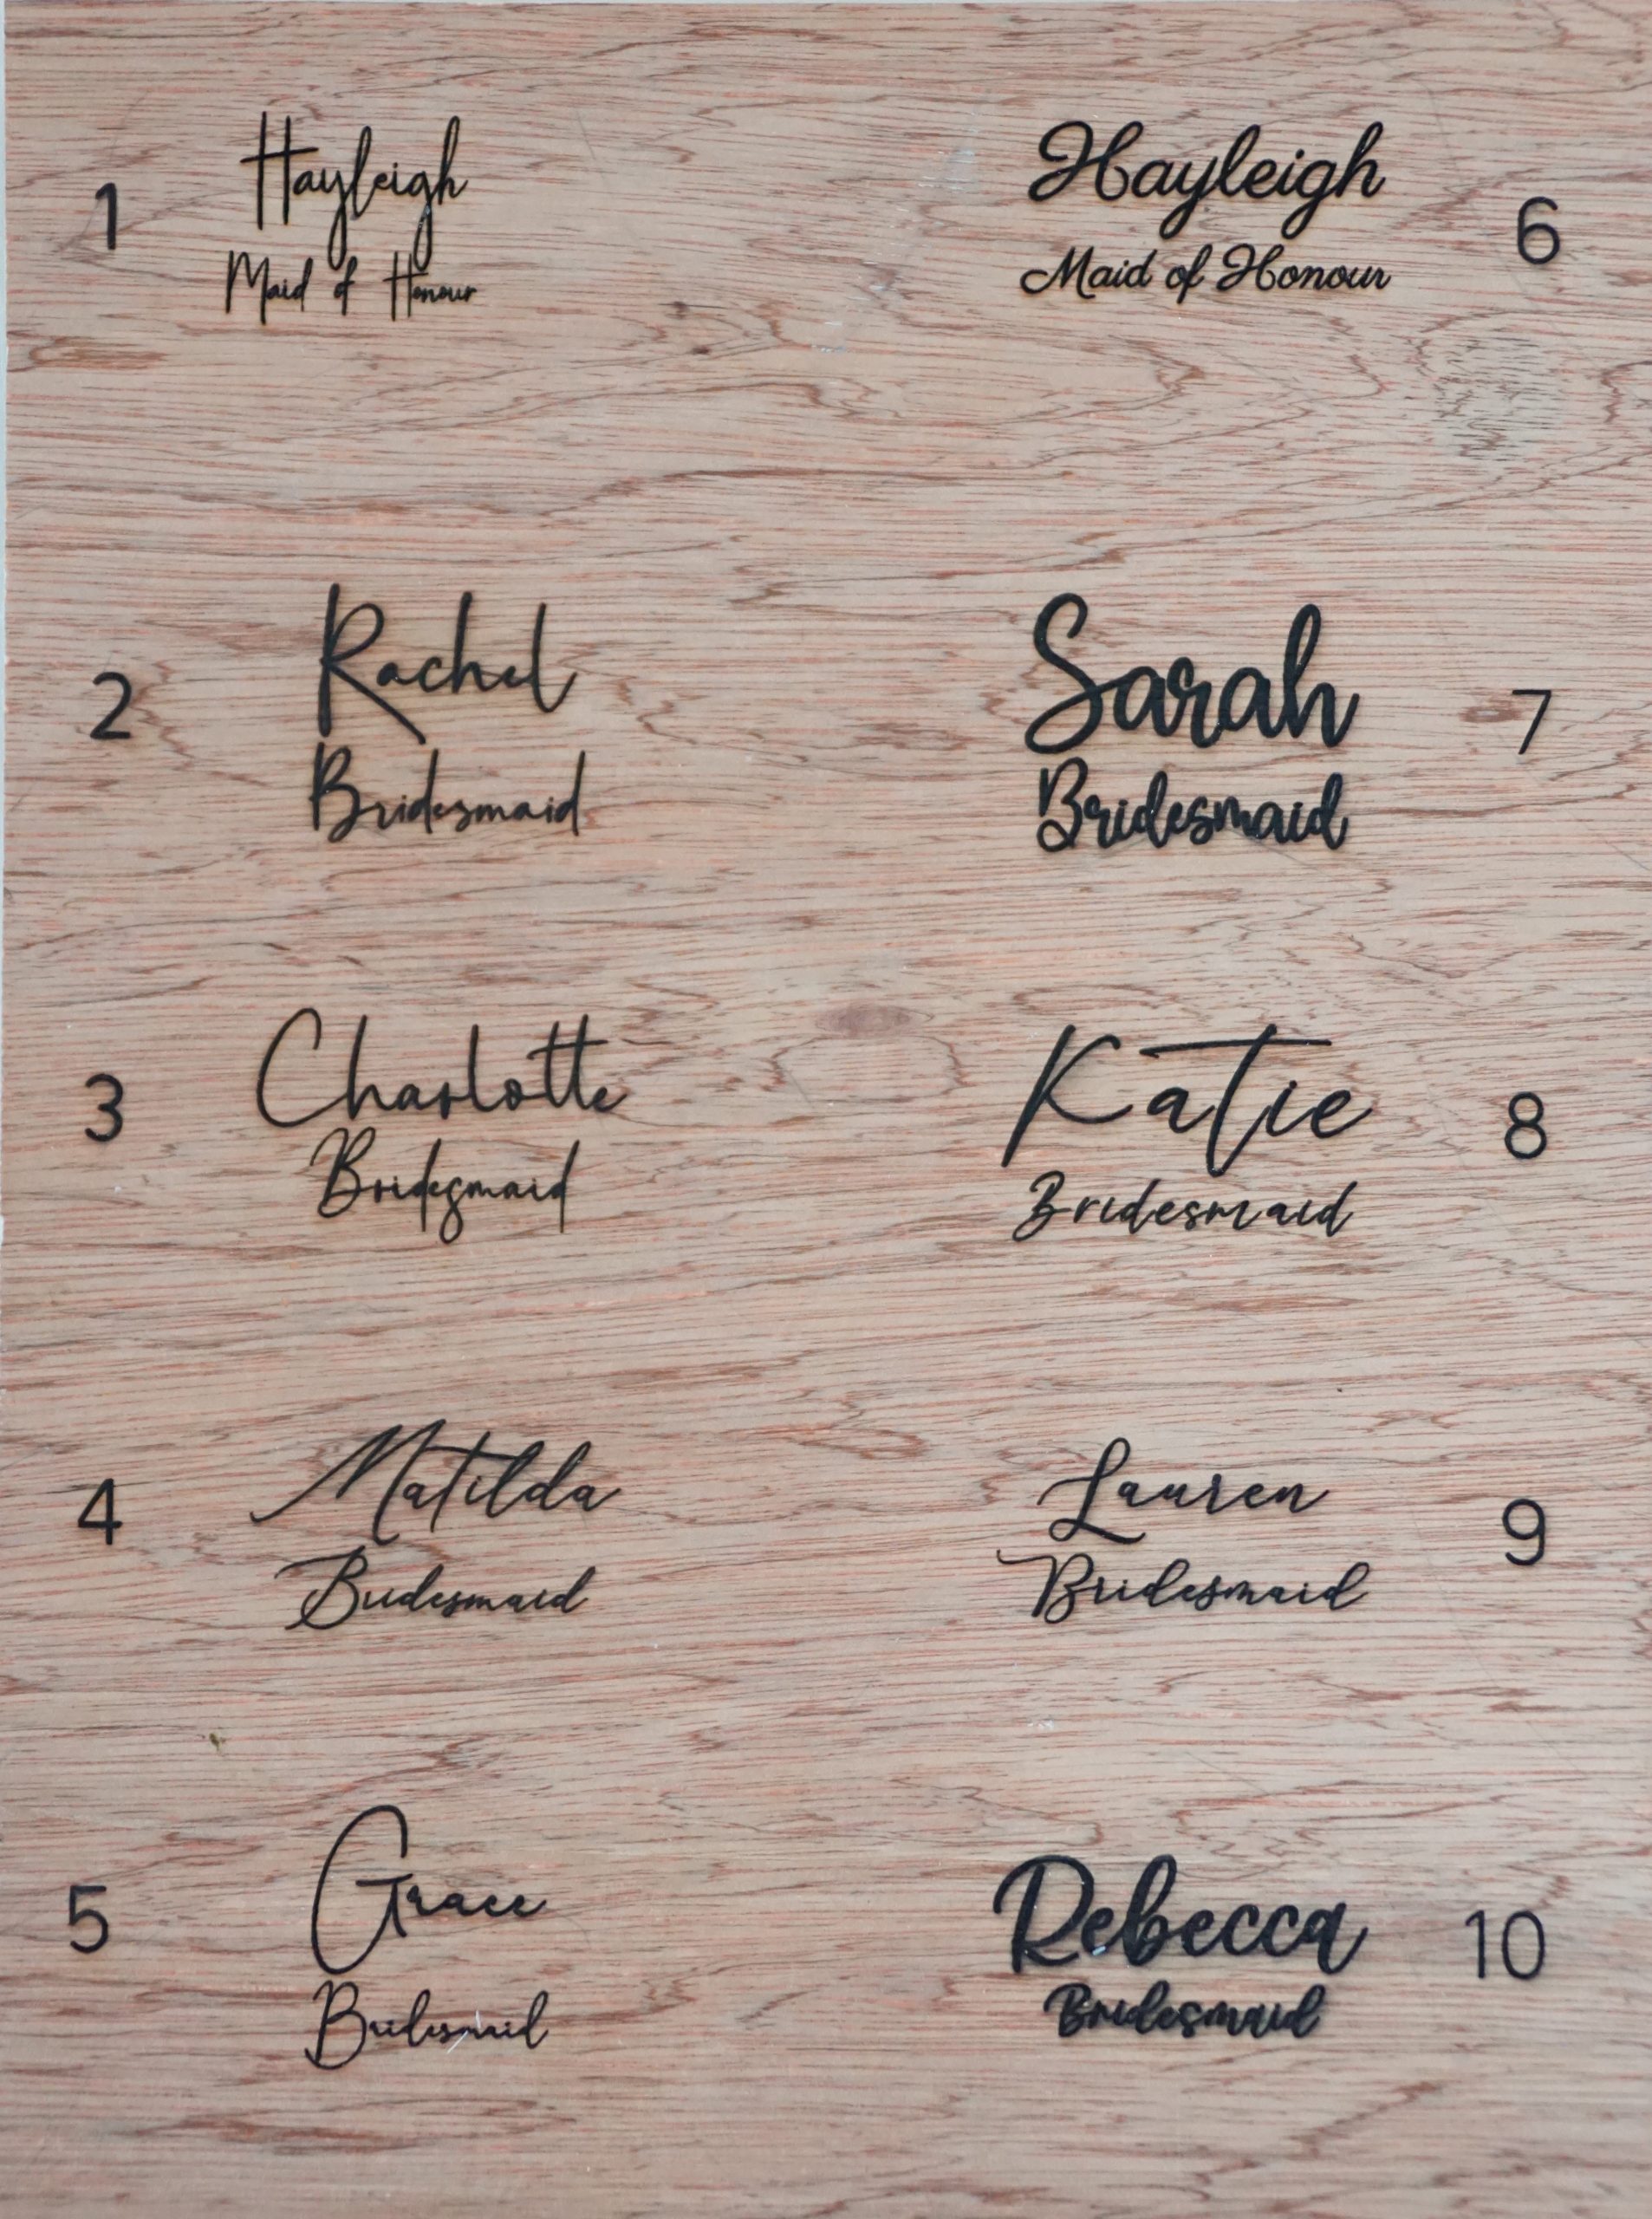 1
Hayleigh
Maid of Honour
2
Rachel
Bridesmaid
3
Charlotte
Bridesmaid
4
Matilda
Bridesmaid
5
Grace
Bridesmaid
6
Hayleigh
Maid of Honour
7
Sarah
Bridesmaid
8
Katie
Bridesmaid
9
Lauren
Bridesmaid
10
Rebecca
Bridesmaid